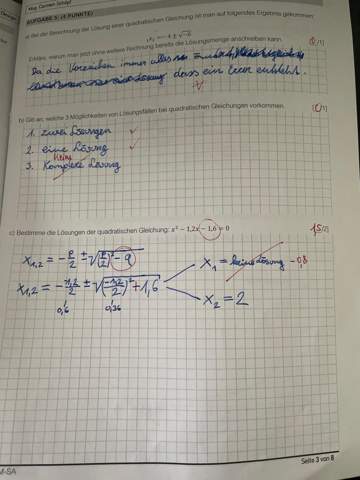 Mag. Carmen
AUFGABE 5: (4 PUNKTE)
a) Bei der Berechnung der Lösung einer quadratischen Gleichung ist man auf folgendes Ergebnis gekommen:
= -4 ± √-6
Erkläre, warum man jetzt ohne weitere Rechnung bereits die Lösungsmenge anschreiben kann.
/1)
Da die Vorzeichen immer
dass ein
b) Gib an, welche 3 Möglichkeiten von Lösungsfällen bei quadratischen Gleichungen vorkommen.
/1)
1. zwei Lösungen
2. eine Lösung
keine
3. Komplexe Lösung
c) Bestimme die Lösungen der quadratischen Gleichung: x² - 1,2x - 1,6 = 0
1,5/2)
x1,2 = -p/2 ± √(p/2)² - q
x1 = keine Lösung -0,8
x1,2 = - -1,2/2 ± √(-1,2/2)² + 1,6
x2 = 2
0,6
0,36
Seite 3 von 8
M-SA